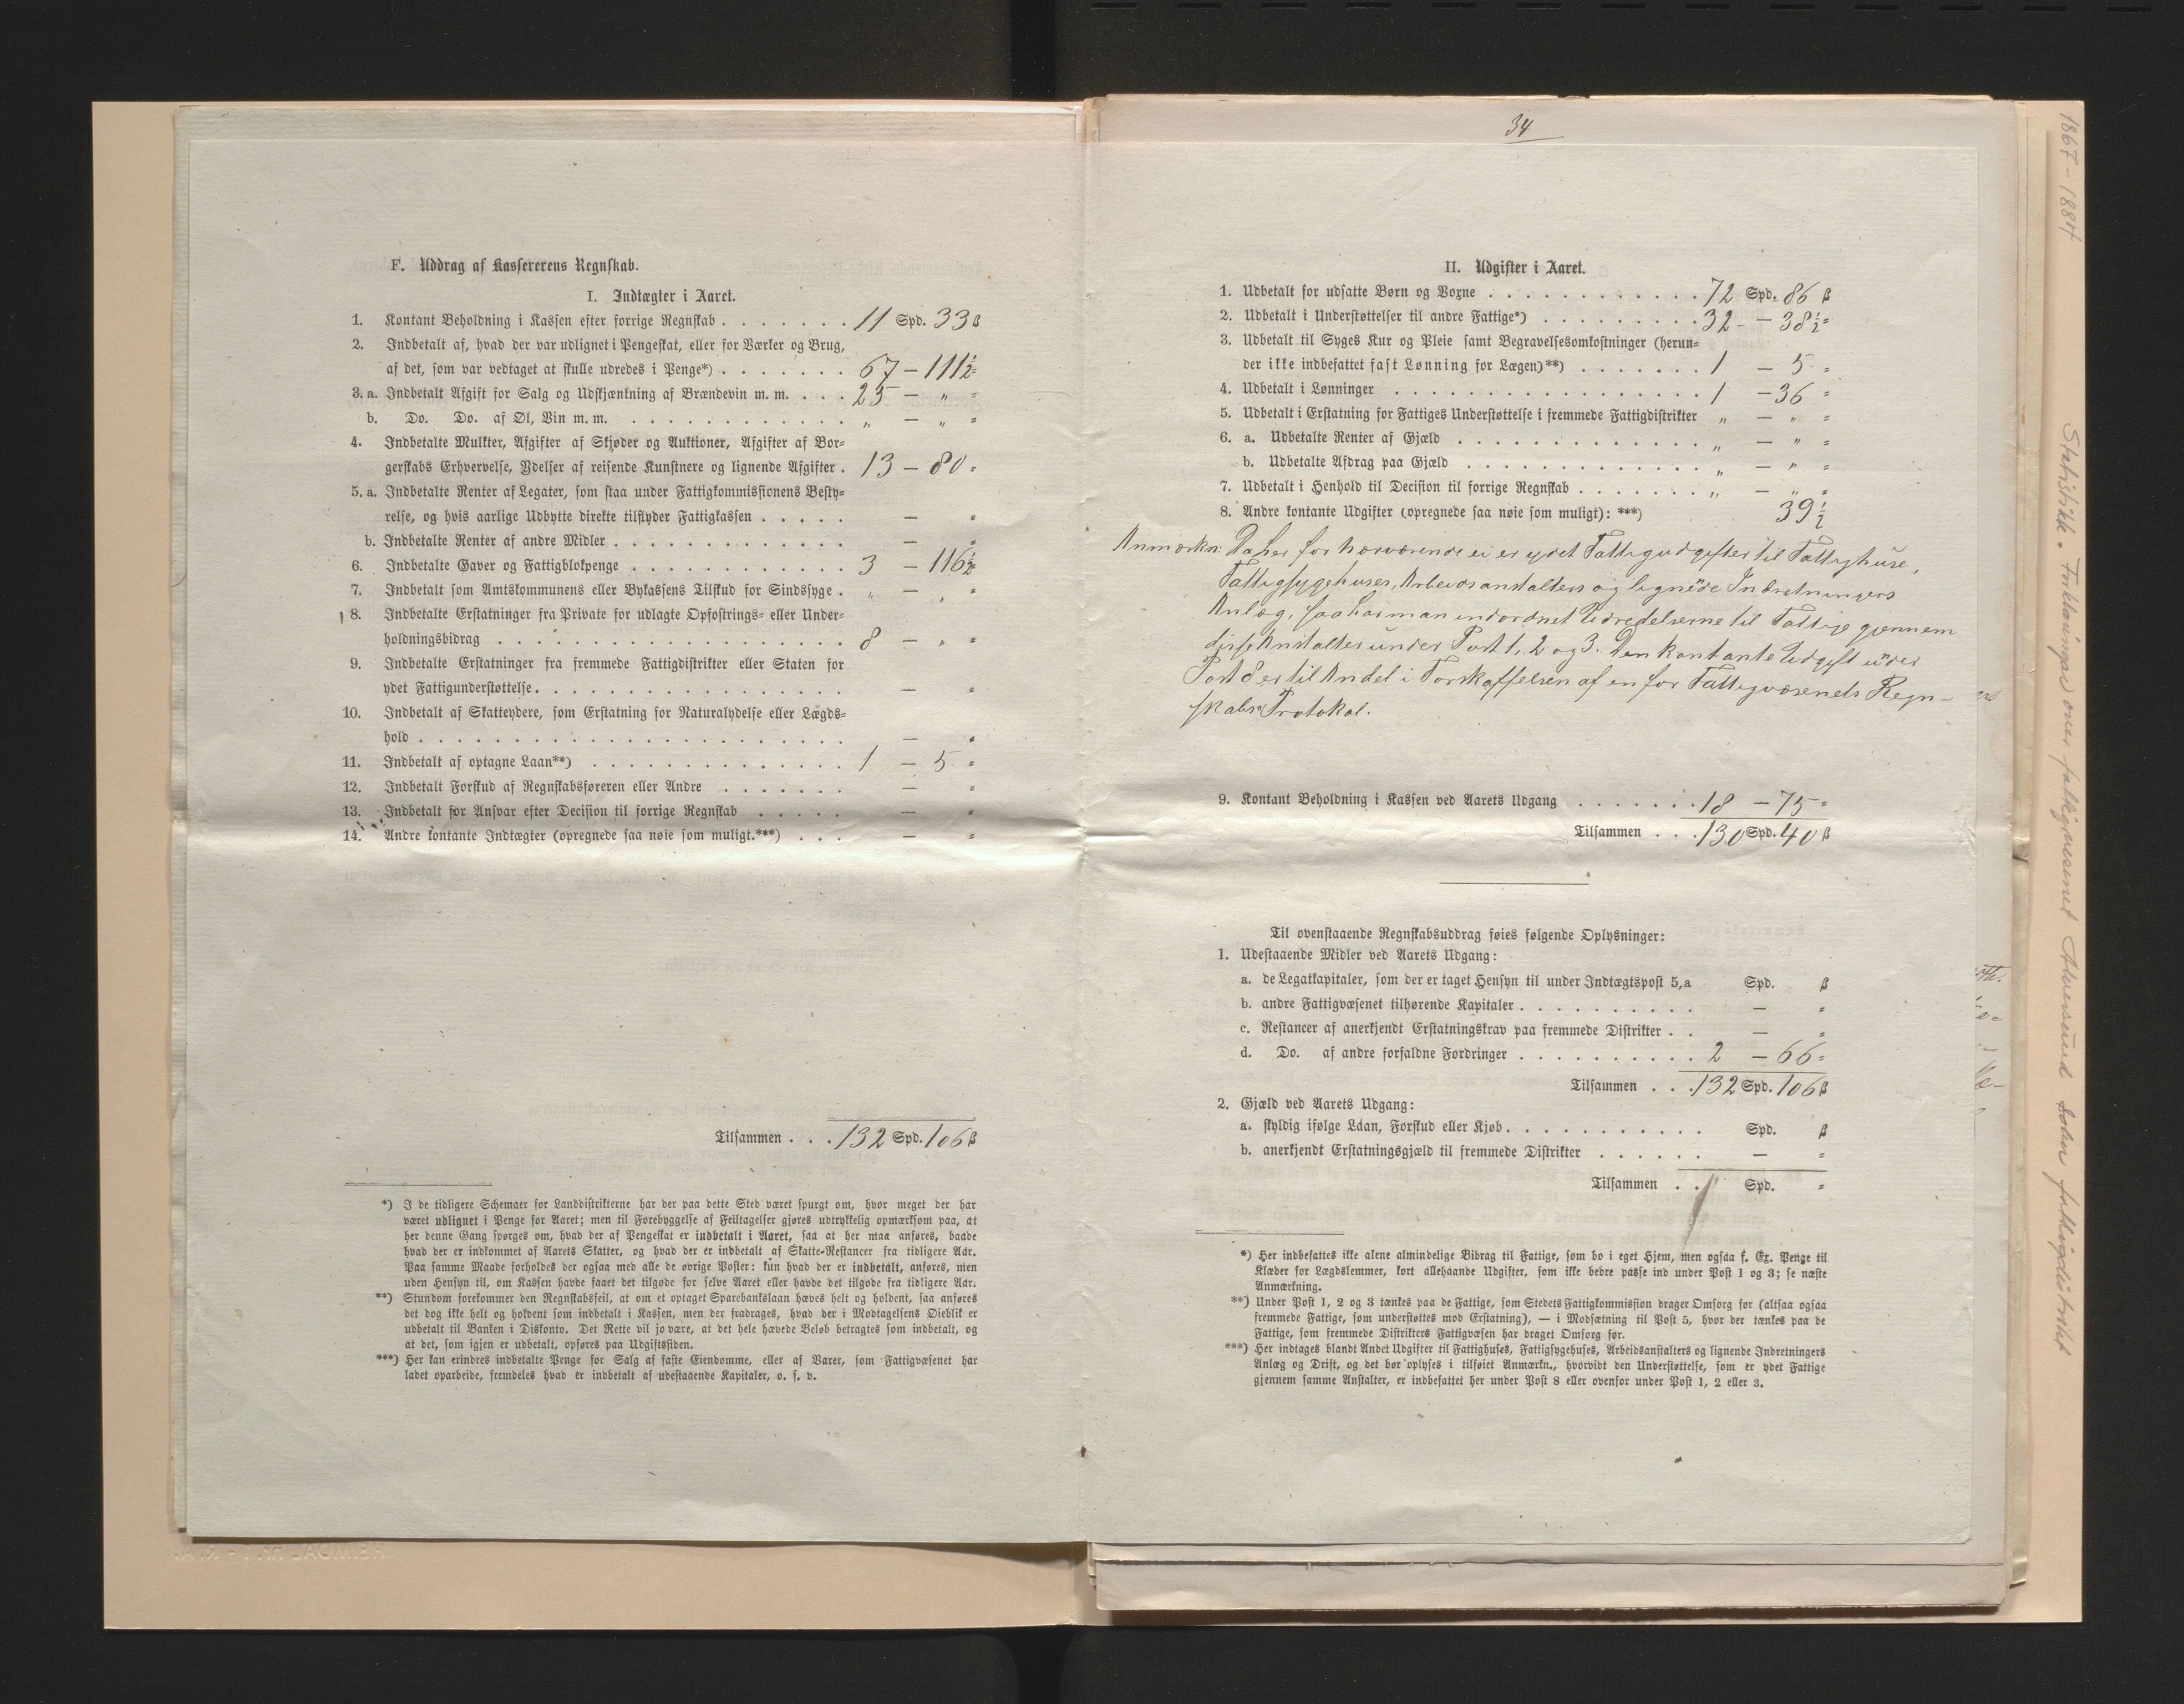 F. Uddrag af Kassererens Regnskab.
I. Indtægter i Aaret.
1. Kontant Beholdning i Kassen efter forrige Regnskab . . . . . . . 11 Spd. 33 ß
2. Indbetalt af, hvad der var udlignet i Pengeskat, eller for Værker og Brug,
af det, som var vedtaget at skulle udredes i Penge*) . . . . . . . 67 — 111½ =
3. a. Indbetalt Afgift for Salg og Udskjænkning af Brændevin m. m. . . . 25 — „ =
b. Do. Do. af Øl, Vin m. m. . . . . . . . . . . . . „ — „ =
4. Indbetalte Mulkter, Afgifter af Skjøder og Auktioner, Afgifter af Bor=
gerskabs Erhvervelse, Ydelser af reisende Kunstnere og lignende Afgifter . 13 — 80 =
5. a. Indbetalte Renter af Legater, som staa under Fattigkommissionens Besty=
relse, og hvis aarlige Udbytte direkte tilflyder Fattigkassen . . . . . — =
b. Indbetalte Renter af andre Midler . . . . . . . . . . . . . — =
6. Indbetalte Gaver og Fattigblokpenge . . . . . . . . . . . . 3 — 116½ =
7. Indbetalt som Amtskommunens eller Bykassens Tilskud for Sindssyge . „ — „ =
8. Indbetalte Erstatninger fra Private for udlagte Opfostrings= eller Under=
holdningsbidrag . . . . . . . . . . . . . . . . . . 8 — „ =
9. Indbetalte Erstatninger fra fremmede Fattigdistrikter eller Staten for
ydet Fattigunderstøttelse . . . . . . . . . . . . . . . . — =
10. Indbetalt af Skatteydere, som Erstatning for Naturalydelse eller Lægds=
hold . . . . . . . . . . . . . . . . . . . . . . — =
11. Indbetalt af optagne Laan**) . . . . . . . . . . . . . 1 — 5 =
12. Indbetalt Forskud af Regnskabsføreren eller Andre . . . . . . . — =
13. Indbetalt for Ansvar efter Decision til forrige Regnskab . . . . . — =
14. Andre kontante Indtægter (opregnede saa nøie som muligt.***) . . . — =
Tilsammen . . . 132 Spd. 106 ß
*) I de tidligere Schemaer for Landdistrikterne har der paa dette Sted været spurgt om, hvor meget der har
været udlignet i Penge for Aaret; men til Forebyggelse af Feiltagelser gjøres udtrykkelig opmærksom paa, at
her denne Gang spørges om, hvad der af Pengeskat er indbetalt i Aaret, saa at her maa anføres, baade
hvad der er indkommet af Aarets Skatter, og hvad der er indbetalt af Skatte-Restancer fra tidligere Aar.
Paa samme Maade forholdes der ogsaa med alle de øvrige Poster: kun hvad der er indbetalt, anføres, men
uden Hensyn til, om Kassen havde faaet det tilgode for selve Aaret eller havde det tilgode fra tidligere Aar.
**) Stundom forekommer den Regnskabsfeil, at om et optaget Sparebankslaan hæves helt og holdent, saa anføres
det dog ikke helt og holdent som indbetalt i Kassen, men der fradrages, hvad der i Modtagelsens Øieblik er
udbetalt til Banken i Diskonto. Det Rette vil jo være, at det hele hævede Beløb betragtes som indbetalt, og
at det, som igjen er udbetalt, opføres paa Udgiftssiden.
***) Her kan erindres indbetalte Penge for Salg af faste Eiendomme, eller af Varer, som Fattigvæsenet har
ladet oparbeide, fremdeles hvad er indbetalt af udestaaende Kapitaler, o. s. v.
34
II. Udgifter i Aaret.
1. Udbetalt for udsatte Børn og Voxne . . . . . . . . . . . . 72 Spd. 86 ß
2. Udbetalt i Understøttelser til andre Fattige*) . . . . . . . . . 32 — 38½ =
3. Udbetalt til Syges Kur og Pleie samt Begravelsesomkostninger (herun=
der ikke indbefattet fast Lønning for Lægen)**) . . . . . . . 1 — 5 =
4. Udbetalt i Lønninger . . . . . . . . . . . . . . . . . 1 — 36 =
5. Udbetalt i Erstatning for Fattiges Understøttelse i fremmede Fattigdistrikter „ — „ =
6. a. Udbetalte Renter af Gjæld . . . . . . . . . . . . . „ — „ =
b. Udbetalte Afdrag paa Gjæld . . . . . . . . . . . . . „ — „ =
7. Udbetalt i Henhold til Decision til forrige Regnskab . . . . . . . „ — „ =
8. Andre kontante Udgifter (opregnede saa nøie som muligt): ***) 39½
Anmærkn: Da her for nærværende ei er ydet Fattigudgifter til Fattighuse,
Fattigsygehuser, Arbeidsanstalters og lignende Indretningers
Anlæg, saa har man indordnet Udredelserne til Fattige gjennem
disse Anstalter under Post 1, 2 og 3. Den kontante Udgift under
Post 8 er til Andel i Forskaffelsen af en for Fattigvæsenets Regn-
skabs Protokol.
9. Kontant Beholdning i Kassen ved Aarets Udgang . . . . . . . 18 — 75 =
Tilsammen . . . 130 Spd. 40 ß
Til ovenstaaende Regnskabsuddrag føies følgende Oplysninger:
1. Udestaaende Midler ved Aarets Udgang:
a. de Legatkapitaler, som der er taget Hensyn til under Indtægtspost 5, a Spd. ß
b. andre Fattigvæsenet tilhørende Kapitaler . . . . . . . . . . — =
c. Restancer af anerkjendt Erstatningskrav paa fremmede Distrikter . . — =
d. Do. af andre forfaldne Fordringer . . . . . . . . . . 2 — 66 =
Tilsammen . . . 132 Spd. 106 ß
2. Gjæld ved Aarets Udgang:
a. skyldig ifølge Laan, Forskud eller Kjøb . . . . . . . . . . . Spd. ß
b. anerkjendt Erstatningsgjæld til fremmede Distrikter . . . . . . — =
Tilsammen . . Spd. =
*) Her indbefattes ikke alene almindelige Bidrag til Fattige, som bo i eget Hjem, men ogsaa f. Ex. Penge til
Klæder for Lægdslemmer, kort allehaande Udgifter, som ikke bedre passe ind under Post 1 og 3; se næste
Anmærkning.
**) Under Post 1, 2 og 3 tænkes paa de Fattige, som Stedets Fattigkommission drager Omsorg for (altsaa ogsaa
fremmede Fattige, som understøttes mod Erstatning), — i Modsætning til Post 5, hvor der tænkes paa de
Fattige, som fremmede Distrikters Fattigvæsen har draget Omsorg for.
***) Her indtages blandt Andet Udgifter til Fattighuses, Fattigsygehuses, Arbeidsanstalters og lignende Indretningers
Anlæg og Drift, og det bør oplyses i tilføiet Anmærkn., hvorvidt den Understøttelse, som er ydet Fattige
gjennem samme Anstalter, er indbefattet her under Post 8 eller ovenfor under Post 1, 2 eller 3.
1867 - 1884 Statistikk. Forklaringar over fattigvesenet Ålvesund sokn fattigdistrikt